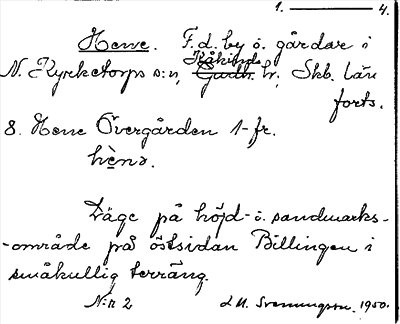 1. ——— 4.
Hene. F.d. by o. gårdar i
Kåkinds
N. Kyrketorps s:n, Gudh. hr, Skb. län
forts.
8. Hene Övergården 1-fr.
hènə.
Läge på höjd- o. sandmarks-
-område på östsidan Billingen i
småkullig terräng.
N:r 2 L M. Svenungsson. 1950.